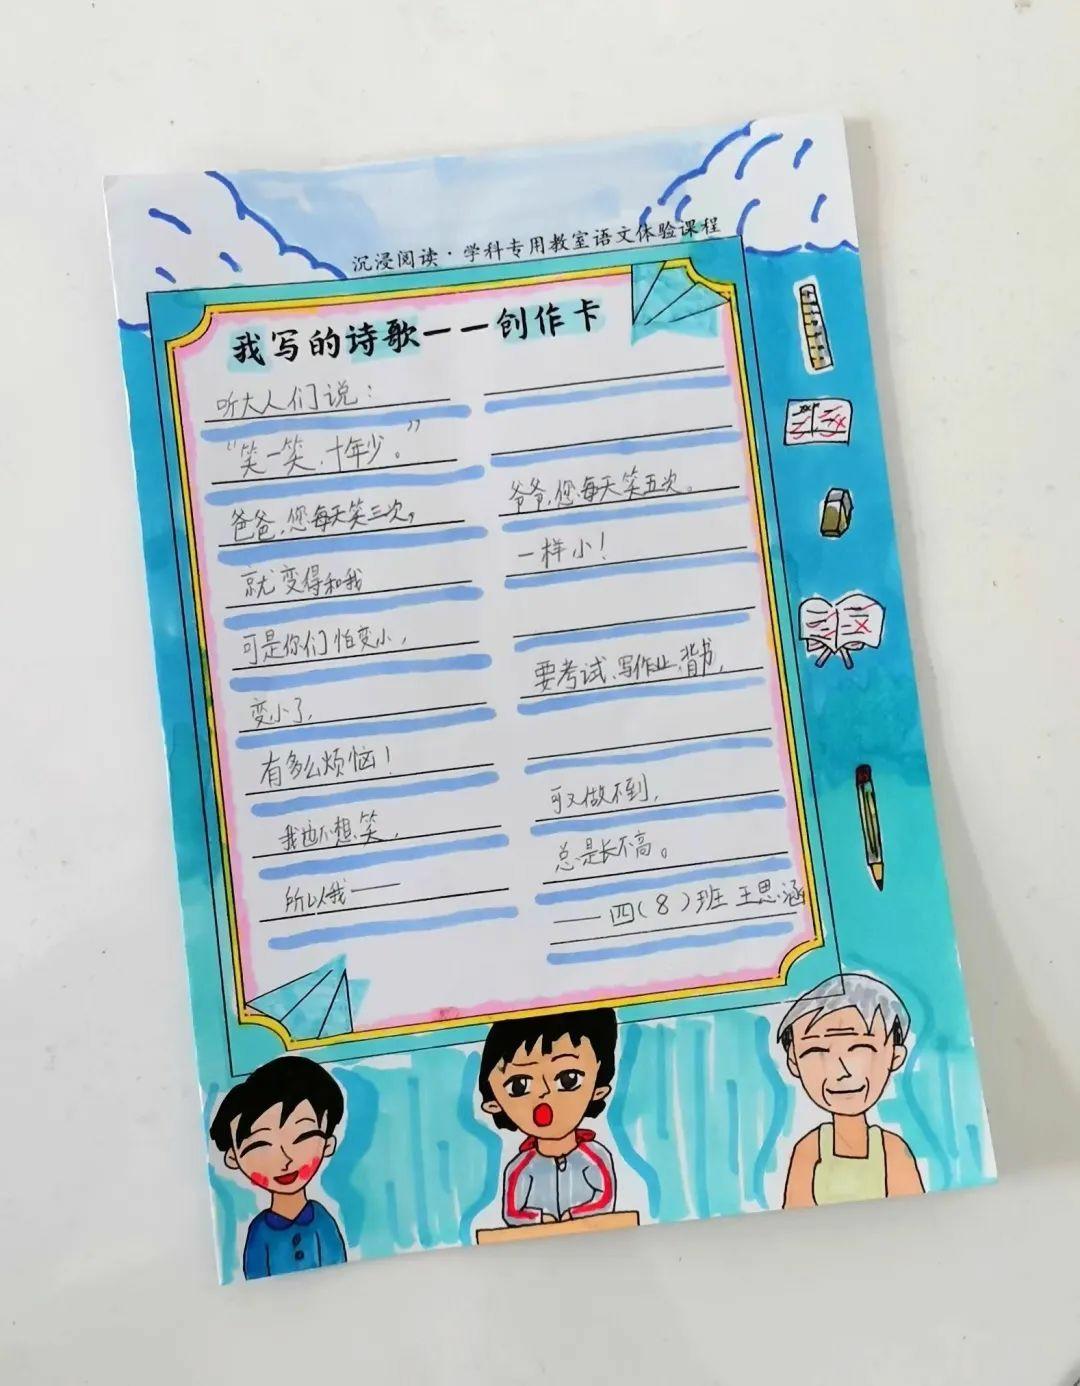 沉浸阅读·学科专用教室语文体验课程
我写的诗歌——创作卡
听大人们说：
“笑一笑，十年少。”
爸爸，您每天笑三次，
爷爷，您每天笑五次。
就变得和我
一样小！
可是你们怕变小，
变小了，
要考试、写作业、背书，
有多么烦恼！
我也不想笑，
可又做不到，
所以我——
总是长不高。
——四（8）班 王思涵